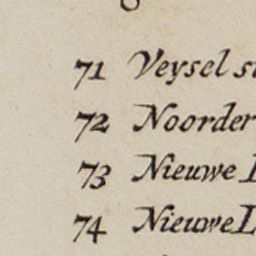 71 Veysel
72 Noorder
73 Nieuwe
74 Nieuwe